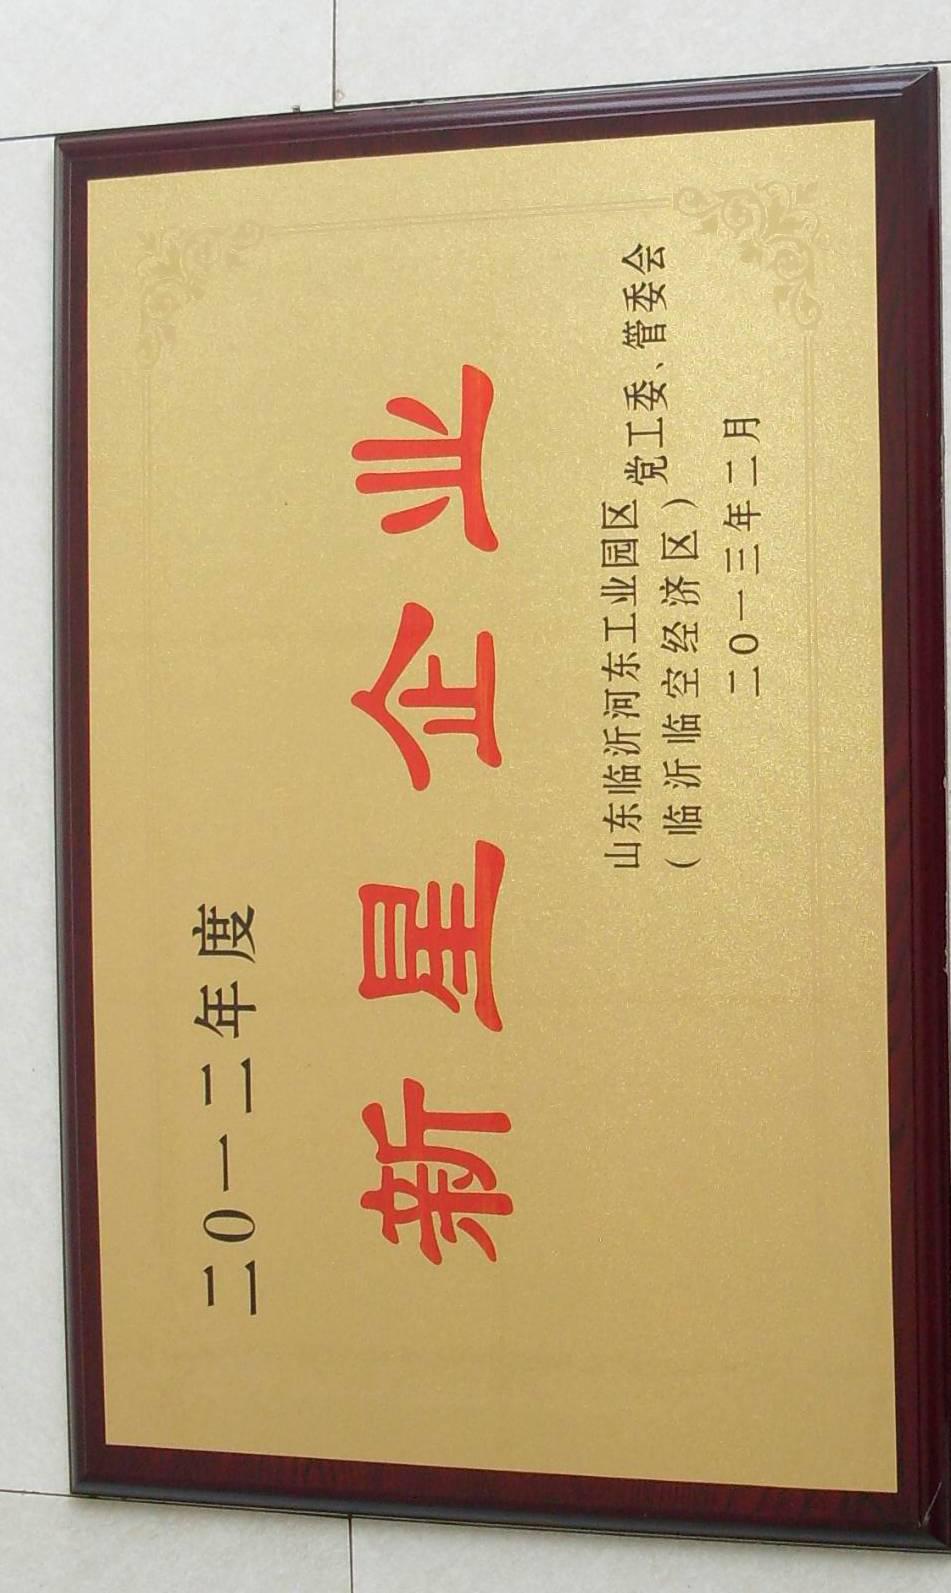 二〇一二年度
新星企业
山东临沂河东工业园区
（临沂临空经济区）
党工委、管委会
二〇一三年二月